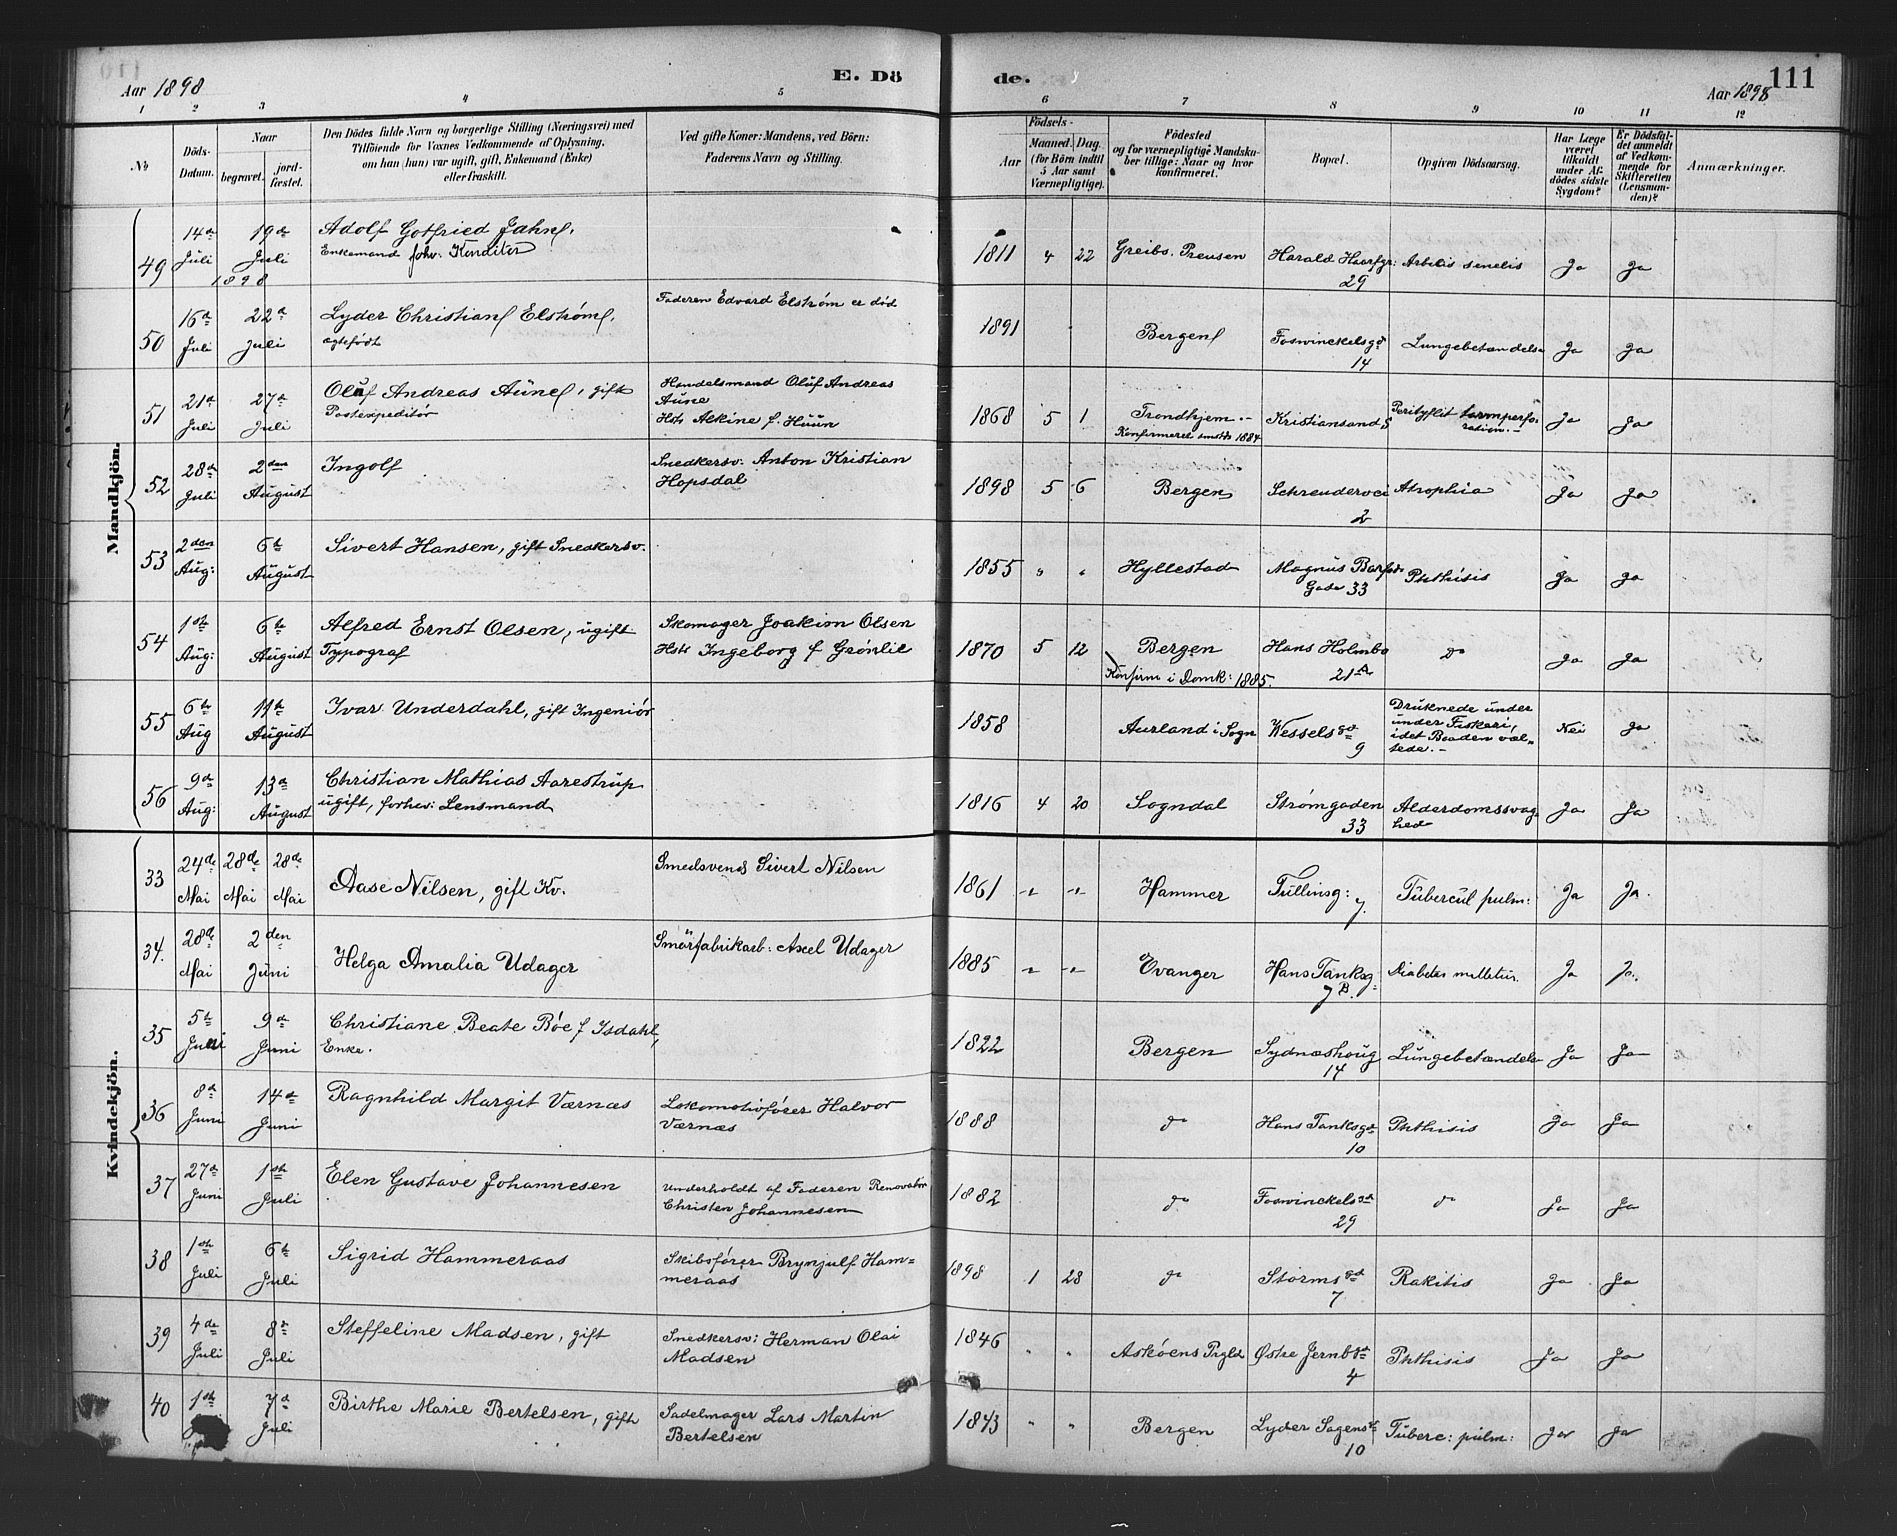 Aar 1898
E. Dö
de.
Aar 1898
111
1 2 3 4 5 6 7 8 9 10 11 12
No
Döds-Datum.
Naar
begravet.
jord-fæstet.
Den Dödes fulde Navn og borgerlige Stilling (Næringsvei) med
Tilföiende for Voxnes Vedkommende af Oplysning,
om han (hun) var ugift, gift, Enkemand (Enke)
eller fraskilt.
Ved gifte Koner: Mandens, ved Börn:
Faderens Navn og Stilling.
Födsels-
Aar
Maaned. Dag.
(for Börn indtil
5 Aar samt
Værnepligtige).
Födested
og for værnepligtige Mandsku-
ber tillige: Naar og hvor
konfirmeret.
Bopæl.
Opgiven Dödsaarsag.
Har Læge
været
tilkaldt
under Af-
dödes sidste
Sygdom?
Er Dödsfal-
det anmeldt
af Vedkom-
mende for
Skifteretten
(Lensman-
den)?
Anmærkninger.
Mandkjön.
49 14de Juli 19de Juli 1898 Adolf Gotfried Jahn, Enkemand forhv: Konditor 1811 4 22 Greibs. Preusen Harald Haarfgr: 29 Ja Ja
50 16de Juli 22de Juli Lyder Christian Elstrøm, ægtefødt Faderen Edvard Elstrøm er død 1891 Bergen Foswinckelsgd 14 Lungebetændelse Ja Ja
51 21de Juli 27de Juli Oluf Andreas Aune, gift Postexpeditør Handelsmand Oluf Andreas Aune Hstr Alkine f. Huun 1868 5 1 Trondhjem.- Konfirmeret smsts 1884 Kristiansand S Perityflit tarmperforation.- Ja Ja
52 28de Juli 2den August Ingolf Snedkersv. Anton Kristian Hopsdal 1898 5 6 Bergen Schreudervei 2 Atrophia Ja Ja
53 2den Aug: 6te August Sivert Hansen, gift Snedkersv. 1855 " " Hyllestad Magnus Barfods Gade 33 Phthisis Ja Ja
54 1ste Aug: 6te August Alfred Ernst Olsen, ugift Typograf Skomager Joakim Olsen Hstr Ingeborg f Grønlie 1870 5 12 Bergen Konfirm i Domk: 1885. Hans Holmbo 21A do Ja Ja
55 6te Aug 11te August Ivar Underdahl, gift Ingeniør 1858 Aurland i Sogn Wesselsgd 9 Druknede under under Fiskeri, idet Baaden væl=tede.- Nei Ja
56 9de Aug: 13de August Christian Mathias Aarestrup ugift, forhv: Lensmand 1816 4 20 Sogndal Strømgaden 33 Alderdomssvaghed Ja Ja
Kvindekjön.
33 24de Mai 28de Mai 28de Mai Aase Nilsen, gift Kv. Smedsvend Sivert Nilsen 1861 -"- -"- Hammer Tullinsg: 7. Tubercul pulm: Ja Ja.
34. 28de Mai 2den Juni Helga Amalia Udager Smörfabrikarb: Axel Udager 1885 -"- -"- Evanger Hans Tanksg: 7B. Diabetes mellitus. Ja Ja.
35 5te Juni 9de Juni Christiane Beate Böe f Isdahl, Enke. 1822 Bergen Sydnæshoug 14 Lungebetændelse Ja Ja
36 8de Juni 14de Juni Ragnhild Margit Værnæs Lokomotivfører Halvor Værnæs 1888 do Hans Tanksgd 10 Phthisis Ja Ja
37 27de Juni 1ste Juli Elen Gustave Johannesen Underholdt af Faderen Renovatør Christen Johannesen 1882 do Foswinckelsgd 29 do Ja Ja
38 1ste Juli 6te Juli Sigrid Hammeraas Skibsfører Brynjulf Ham=meraas 1898 1 28 do Stormsgd 7 Rakitis Ja Ja
39 4de Juli 8de Juli Steffeline Madsen, gift Snedkersv: Herman Olai Madsen 1846 " " Askøens Prgld Østre Jernbgd 4 Phthisis Ja Ja
40 1ste 7de Juli Birthe Marie Bertelsen, gift Sadelmager Lars Martin Bertelsen 1843 " " Bergen Lyder Sagensgd 10 Tuberc: pulm: Ja Ja